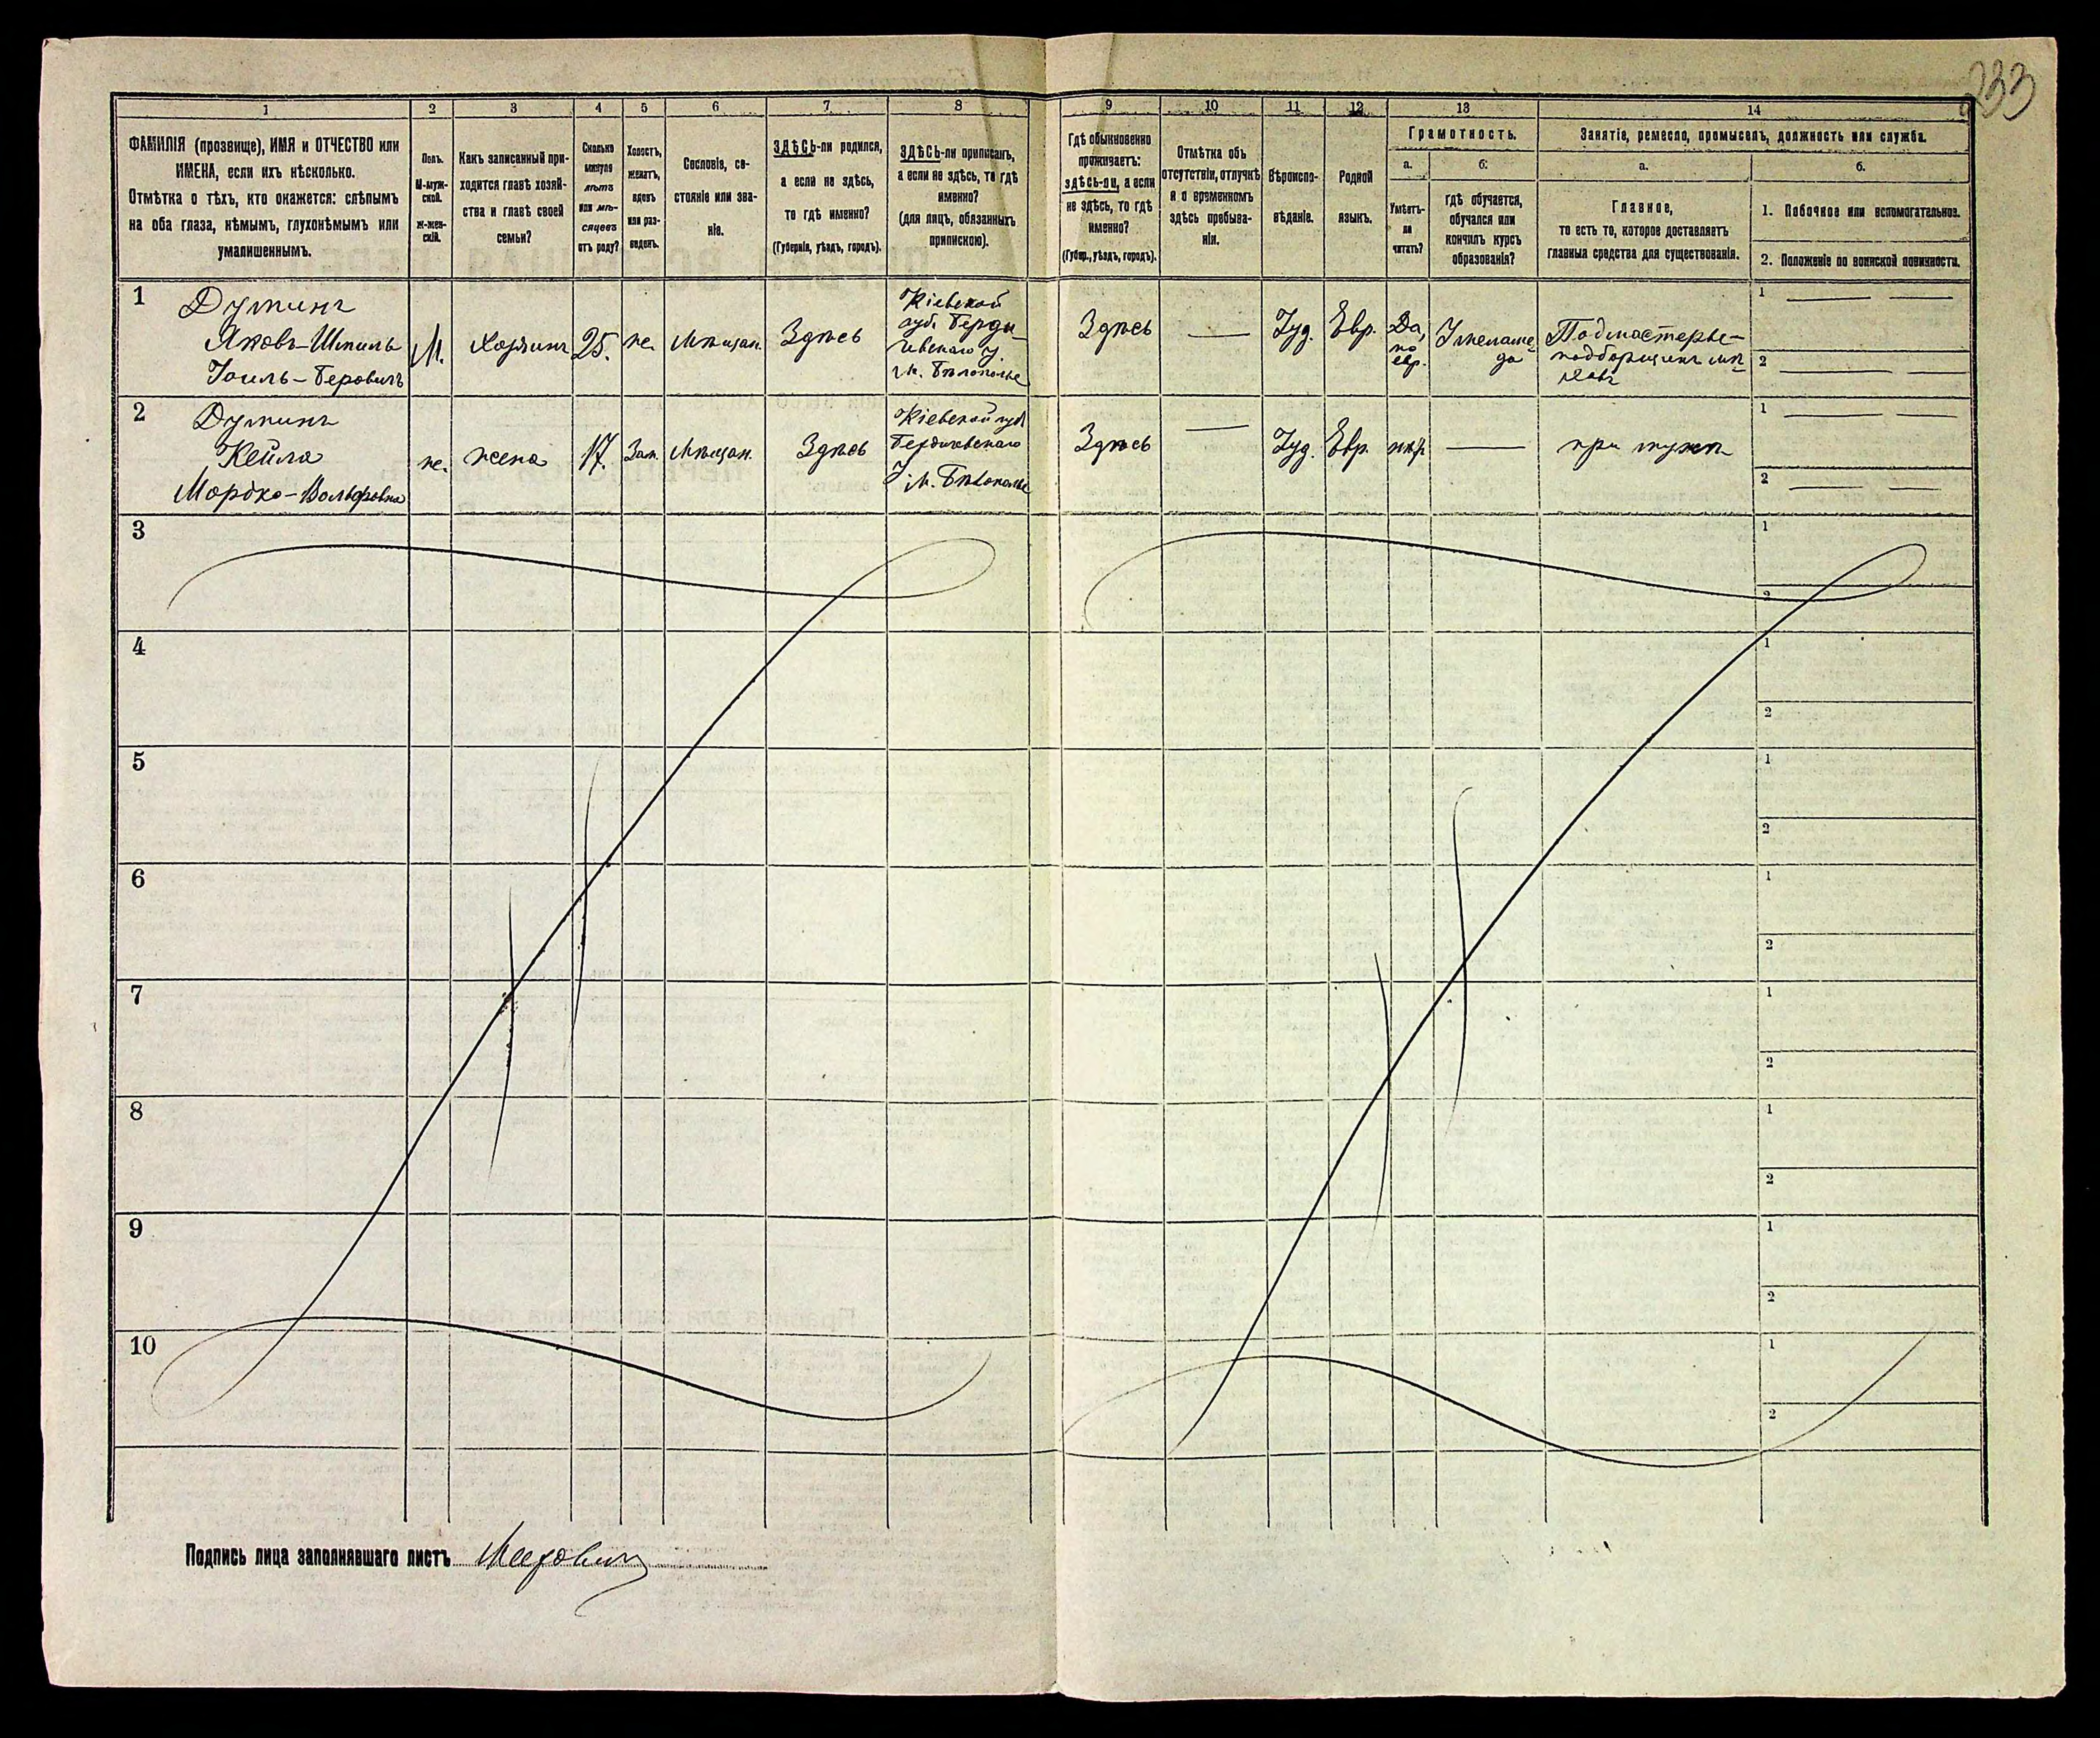 233
1
2
3
4
5
6
7
8
9
10
11
12
13
14
ФАМИЛІЯ (прозвище), ИМЯ и ОТЧЕСТВО или
ИМЕНА, если ихъ нѣсколько.
Отмѣтка о тѣхъ, кто окажется: слѣпымъ
на оба глаза, нѣмымъ, глухонѣмымъ или
умалишеннымъ.
Полъ.
М-муж-
ской.
Ж-жен-
скій.
Какъ записанный при-
ходится главѣ хозяй-
ства и главѣ своей
семьи?
Сколько
минуло
лѣтъ
или мѣ-
сяцевъ
отъ роду?
Холостъ,
женатъ,
вдовъ
или раз-
веденъ.
Сословіе, со-
стояніе или зва-
ніе.
ЗДѢСЬ-ли родился,
а если не здѣсь,
то гдѣ именно?
(Губернія, уѣздъ, городъ).
ЗДѢСЬ-ли приписанъ,
а если не здѣсь, то гдѣ
именно?
(для лицъ, обязанныхъ
припискою).
Гдѣ обыкновенно
проживаетъ:
здѣсь-ли, а если
не здѣсь, то гдѣ
именно?
(Губер., уѣздъ, городъ).
Отмѣтка объ
отсутствіи, отлучкѣ
и о временномъ
здѣсь пребыва-
ніи.
Вѣроиспо-
вѣданіе.
Родной
языкъ.
Грамотность.
а.
Умѣетъ-
ли
читать?
б.
гдѣ обучается,
обучался или
кончилъ курсъ
образованія?
Занятіе, ремесло, промыселъ, должность или служба.
а.
Главное,
то есть то, которое доставляетъ
главныя средства для существованія.
б.
1. Побочное или вспомогательное.
2. Положеніе по воинской повинности.
1
Думинъ
Яковъ-Шмиль
Іоиль-Беровичъ
М.
Хозяинъ
25.
же.
Мѣщан.
Здѣсь
Кіевской
губ. Берди-
чевскаго у.
м. Бѣлополье
Здѣсь
Іуд.
Евр.
Да,
по
евр.
У меламе-
да
Подмастерье-
1
2
2
Думинъ
Кейла
Мордко-Вольфовна
же.
жена
17.
Зам.
Мѣщан.
Здѣсь
Кіевской губ
Бердичевскаго
У. м. Бѣлополье
Здѣсь
Іуд.
Евр.
при мужѣ
1
2
3
1
2
4
1
2
5
1
2
6
1
2
7
1
2
8
1
2
9
1
2
10
1
2
Подпись лица заполнявшаго листъ